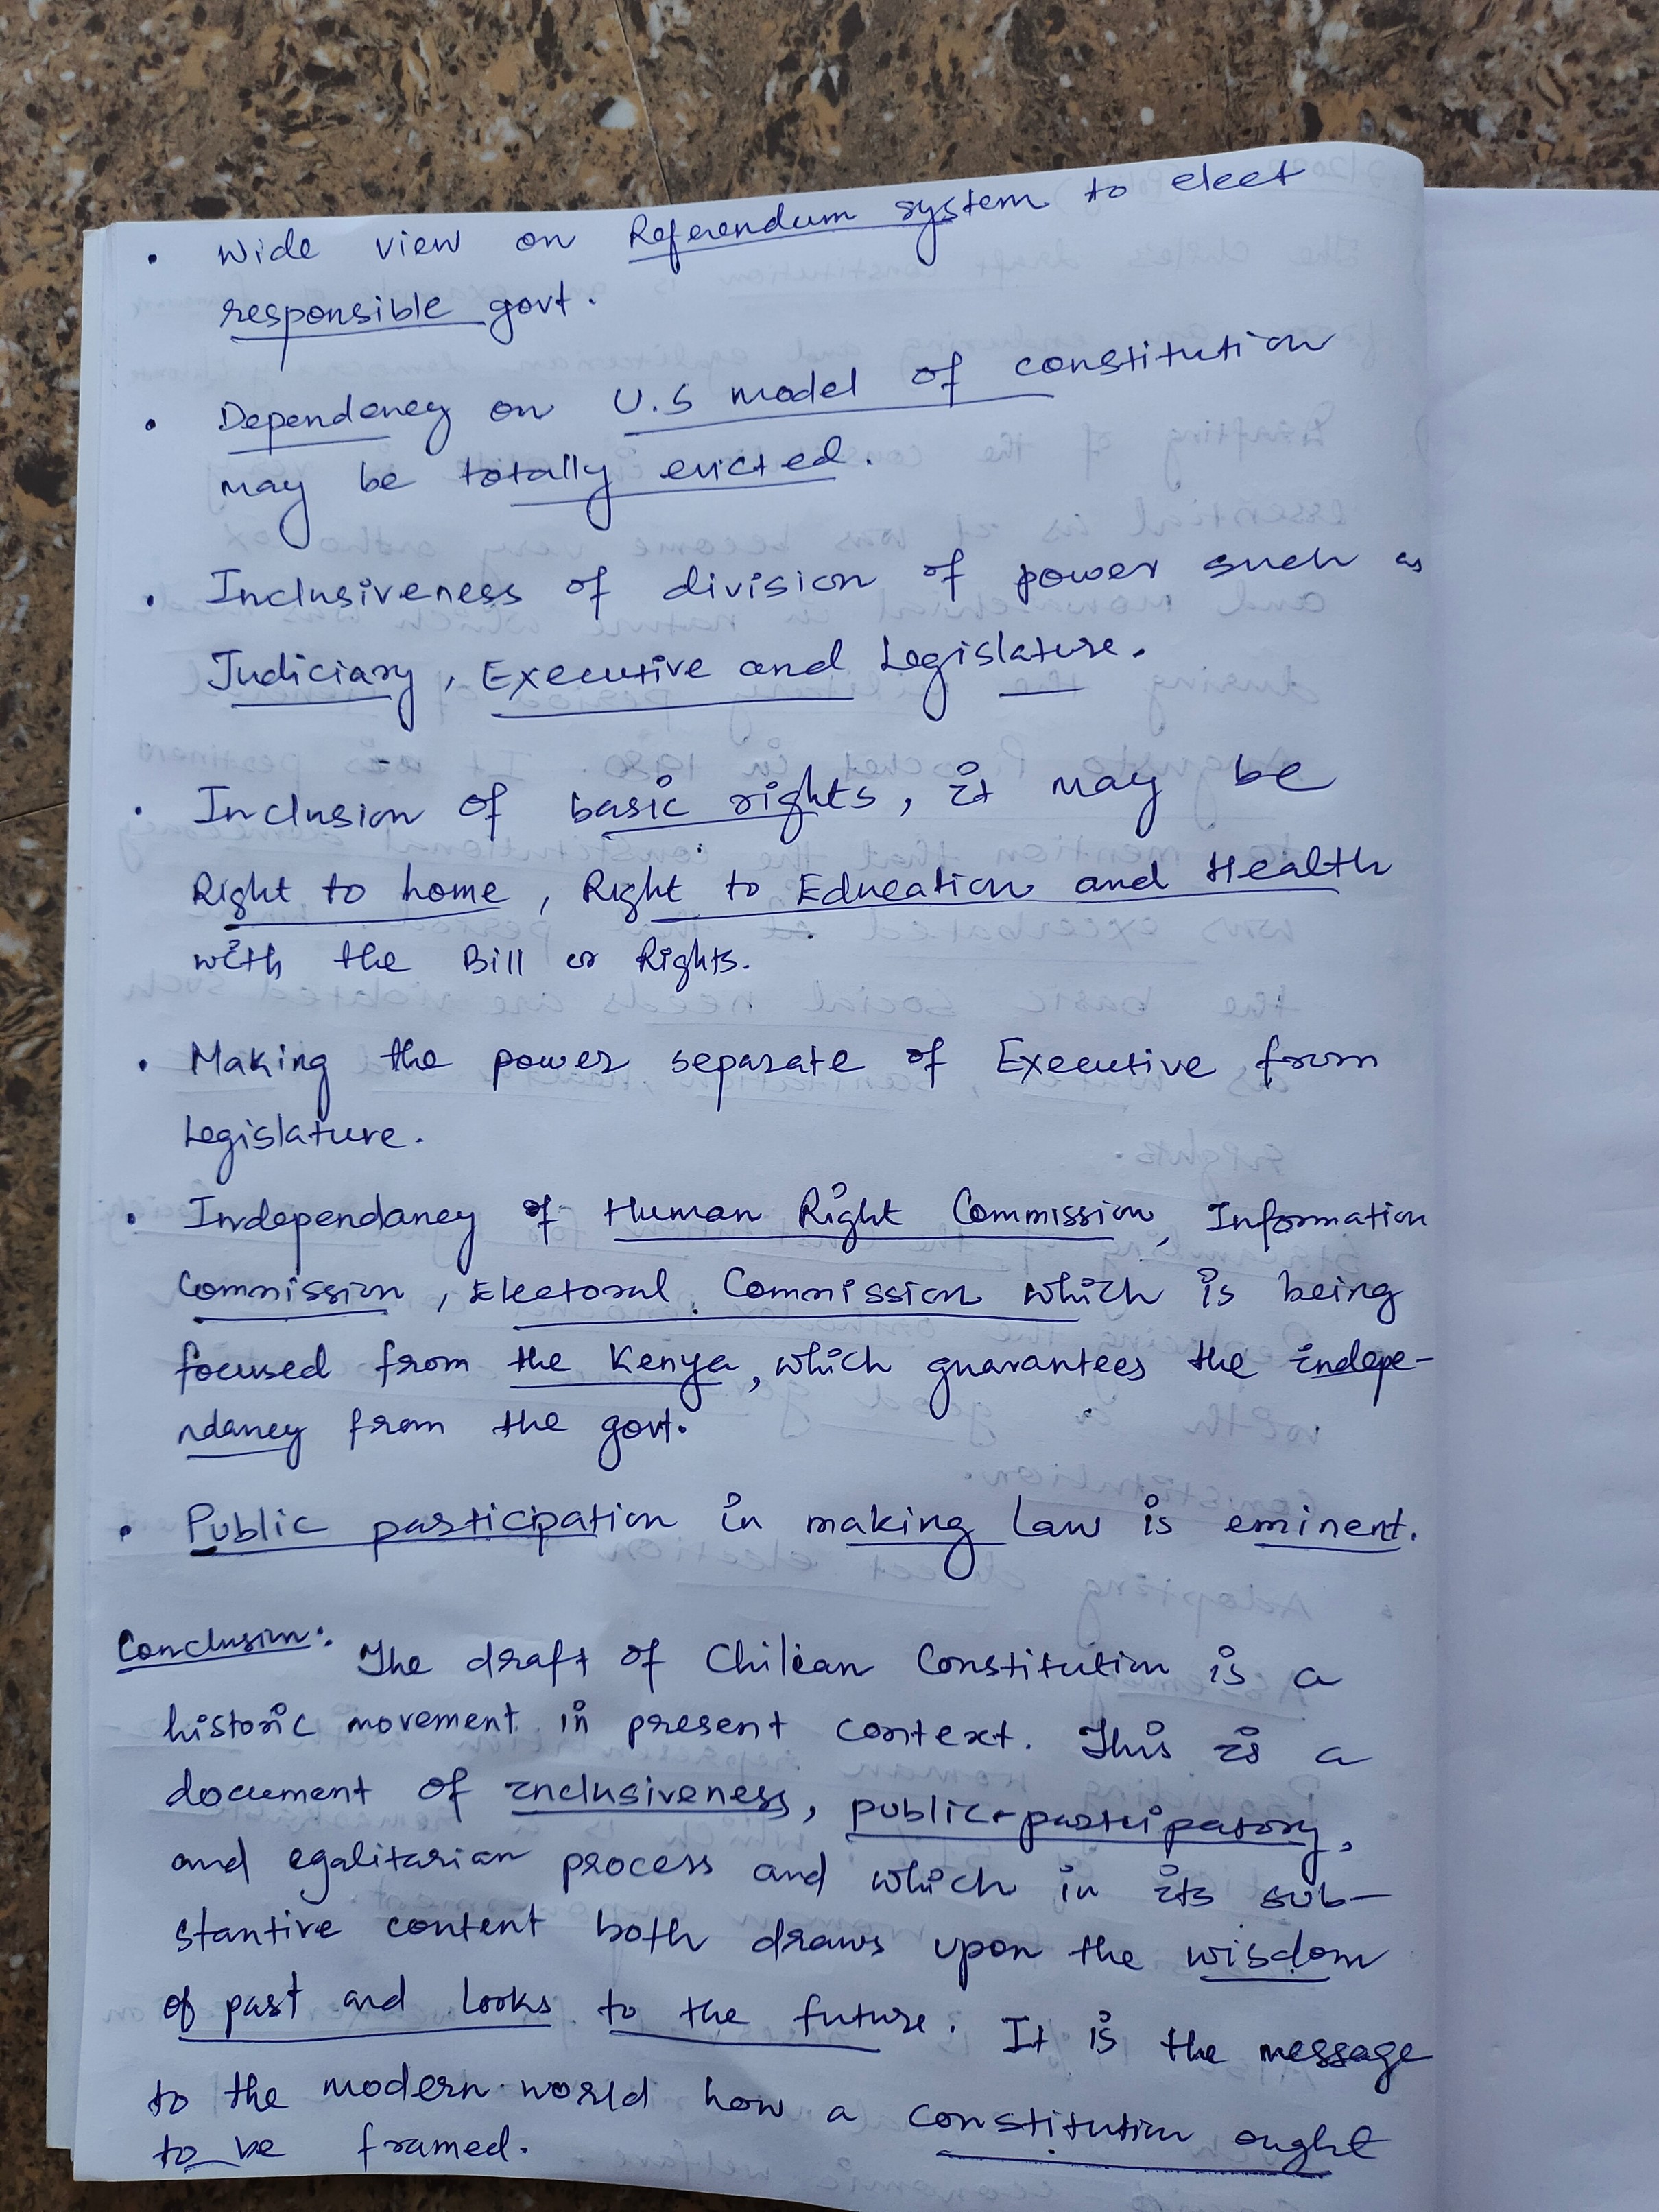 • Wide view on Referendum system to elect
responsible govt.
• Dependency on U.S model of constitution
may be totally evicted.
• Inclusiveness of division of power such as
Judiciary, Executive and Legislature.
• Inclusion of basic rights, it may be
Right to home, Right to Education and Health
with the Bill or Rights.
• Making the power separate of Executive from
Legislature.
• Independancy of Human Right Commission, Information
Commission, Electoral Commission which is being
focused from the Kenya, which guarantees the indepe-
ndancy from the govt.
• Public participation in making law is eminent.
Conclusion: The draft of Chilean Constitution is a
historic movement in present context. This is a
document of inclusiveness, public-participatory,
and egalitarian process and which in its sub-
stantive content both draws upon the wisdom
of past and looks to the future. It is the message
to the modern world how a constitution ought
to be framed.